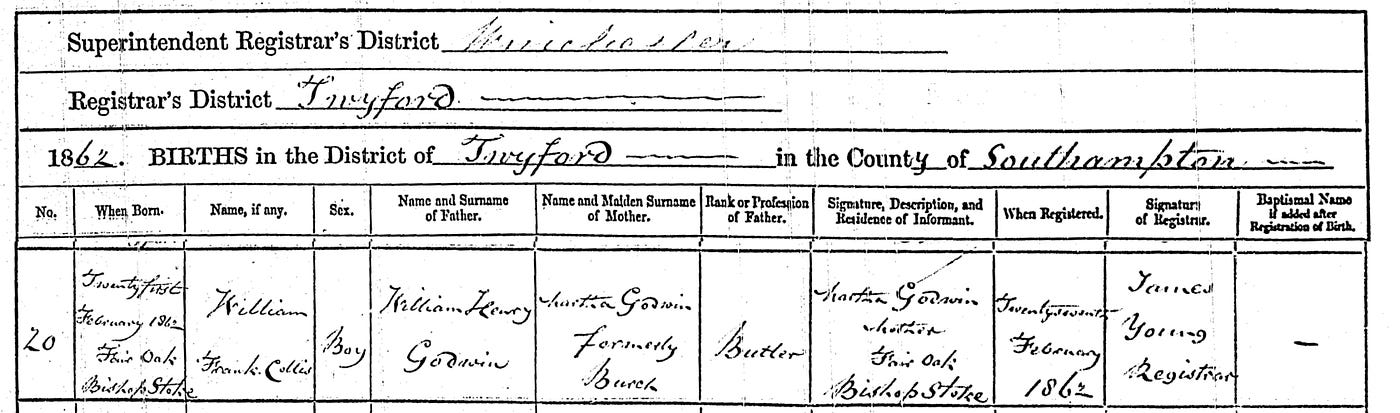 Superintendent Registrar's District Winchester
Registrar's District Twyford
1862. BIRTHS in the District of Twyford in the County of Southampton
No. When Born. Name, if any. Sex. Name and Surname of Father. Name and Maiden Surname of Mother. Rank or Profession of Father. Signature, Description, and Residence of Informant. When Registered. Signature of Registrar. Baptismal Name if added after Registration of Birth.
20
Twenty first
February 1862
Fair Oak
Bishop Stoke
William
Frank Collis
Boy
William Henry
Godwin
Martha Godwin
formerly
Burch
Butler
Martha Godwin
Mother
Fair Oak
Bishop Stoke
Twenty seventh
February
1862
James
Young
Registrar
—